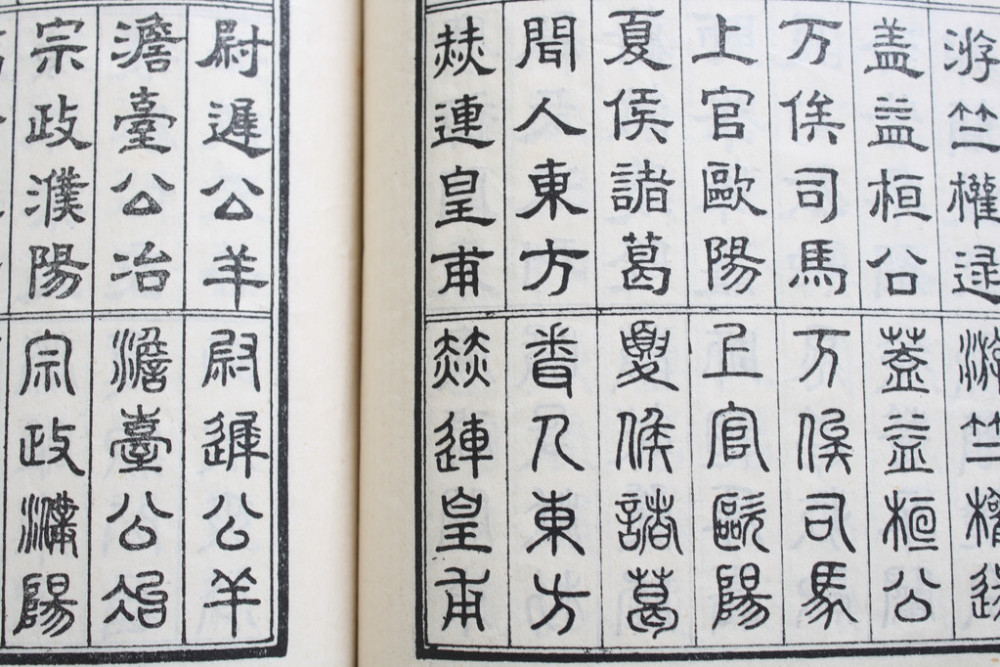 游竺權逯
盖益桓公
万俟司馬
上官歐陽
夏侯諸葛
聞人東方
赫連皇甫
游竺權逯
蓋益桓公
万俟司馬
上官歐陽
夏侯諸葛
聞人東方
赫連皇甫
尉遲公羊
澹臺公治
宗政濮陽
尉遲公羊
澹臺公冶
宗政濮陽